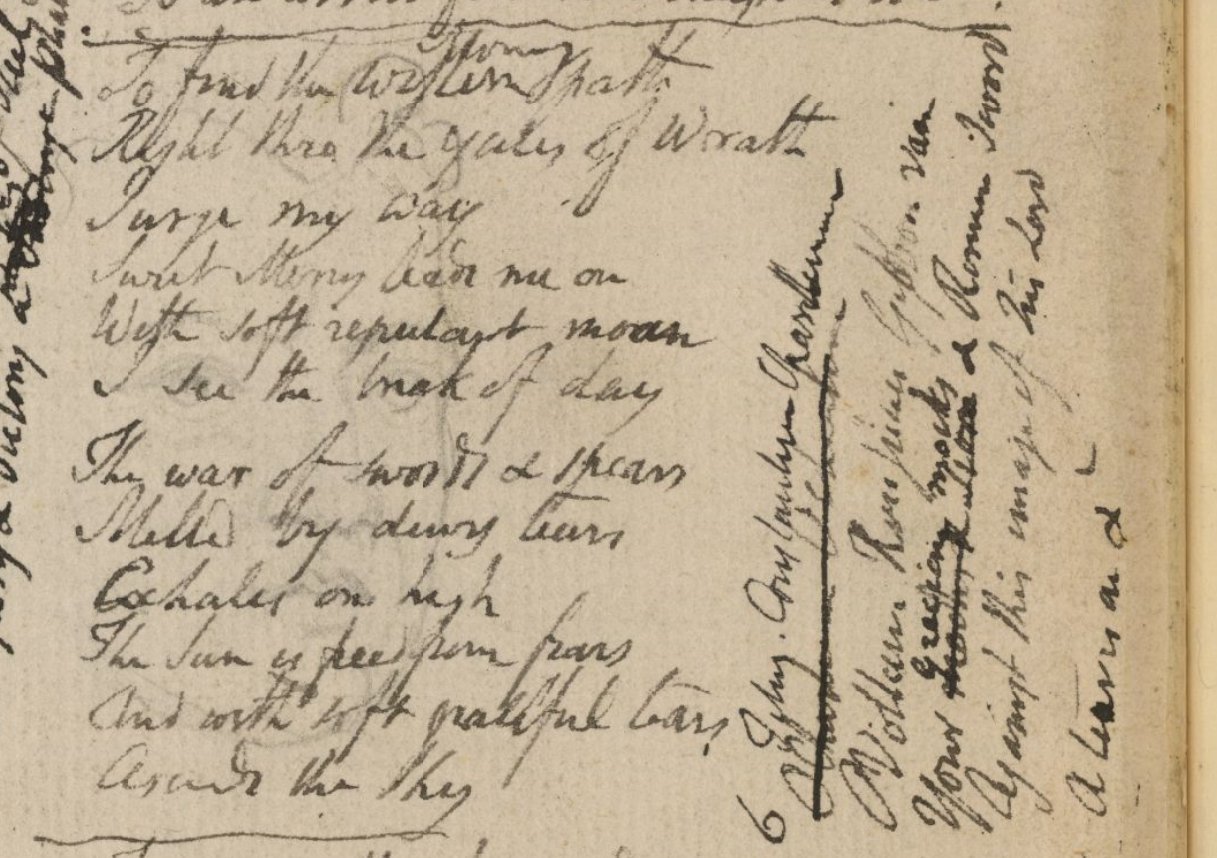 Morning
To find the Western path
Right thro the gates of Wrath
I urge my way
Sweet Mercy leads me on
With soft repentant moan
I see the break of day
The war of swords & spears
Melted by dewy tears
Exhales on high
The Sun is freed from fears
And with soft grateful tears
Ascends the sky
& Victory a
6 Titus! Constantine Charlemaine
O Voltaire Rousseau Gibbon vain
Your Grecian mocks & Roman Sword
Against this image of his Lord
A tear is an &c